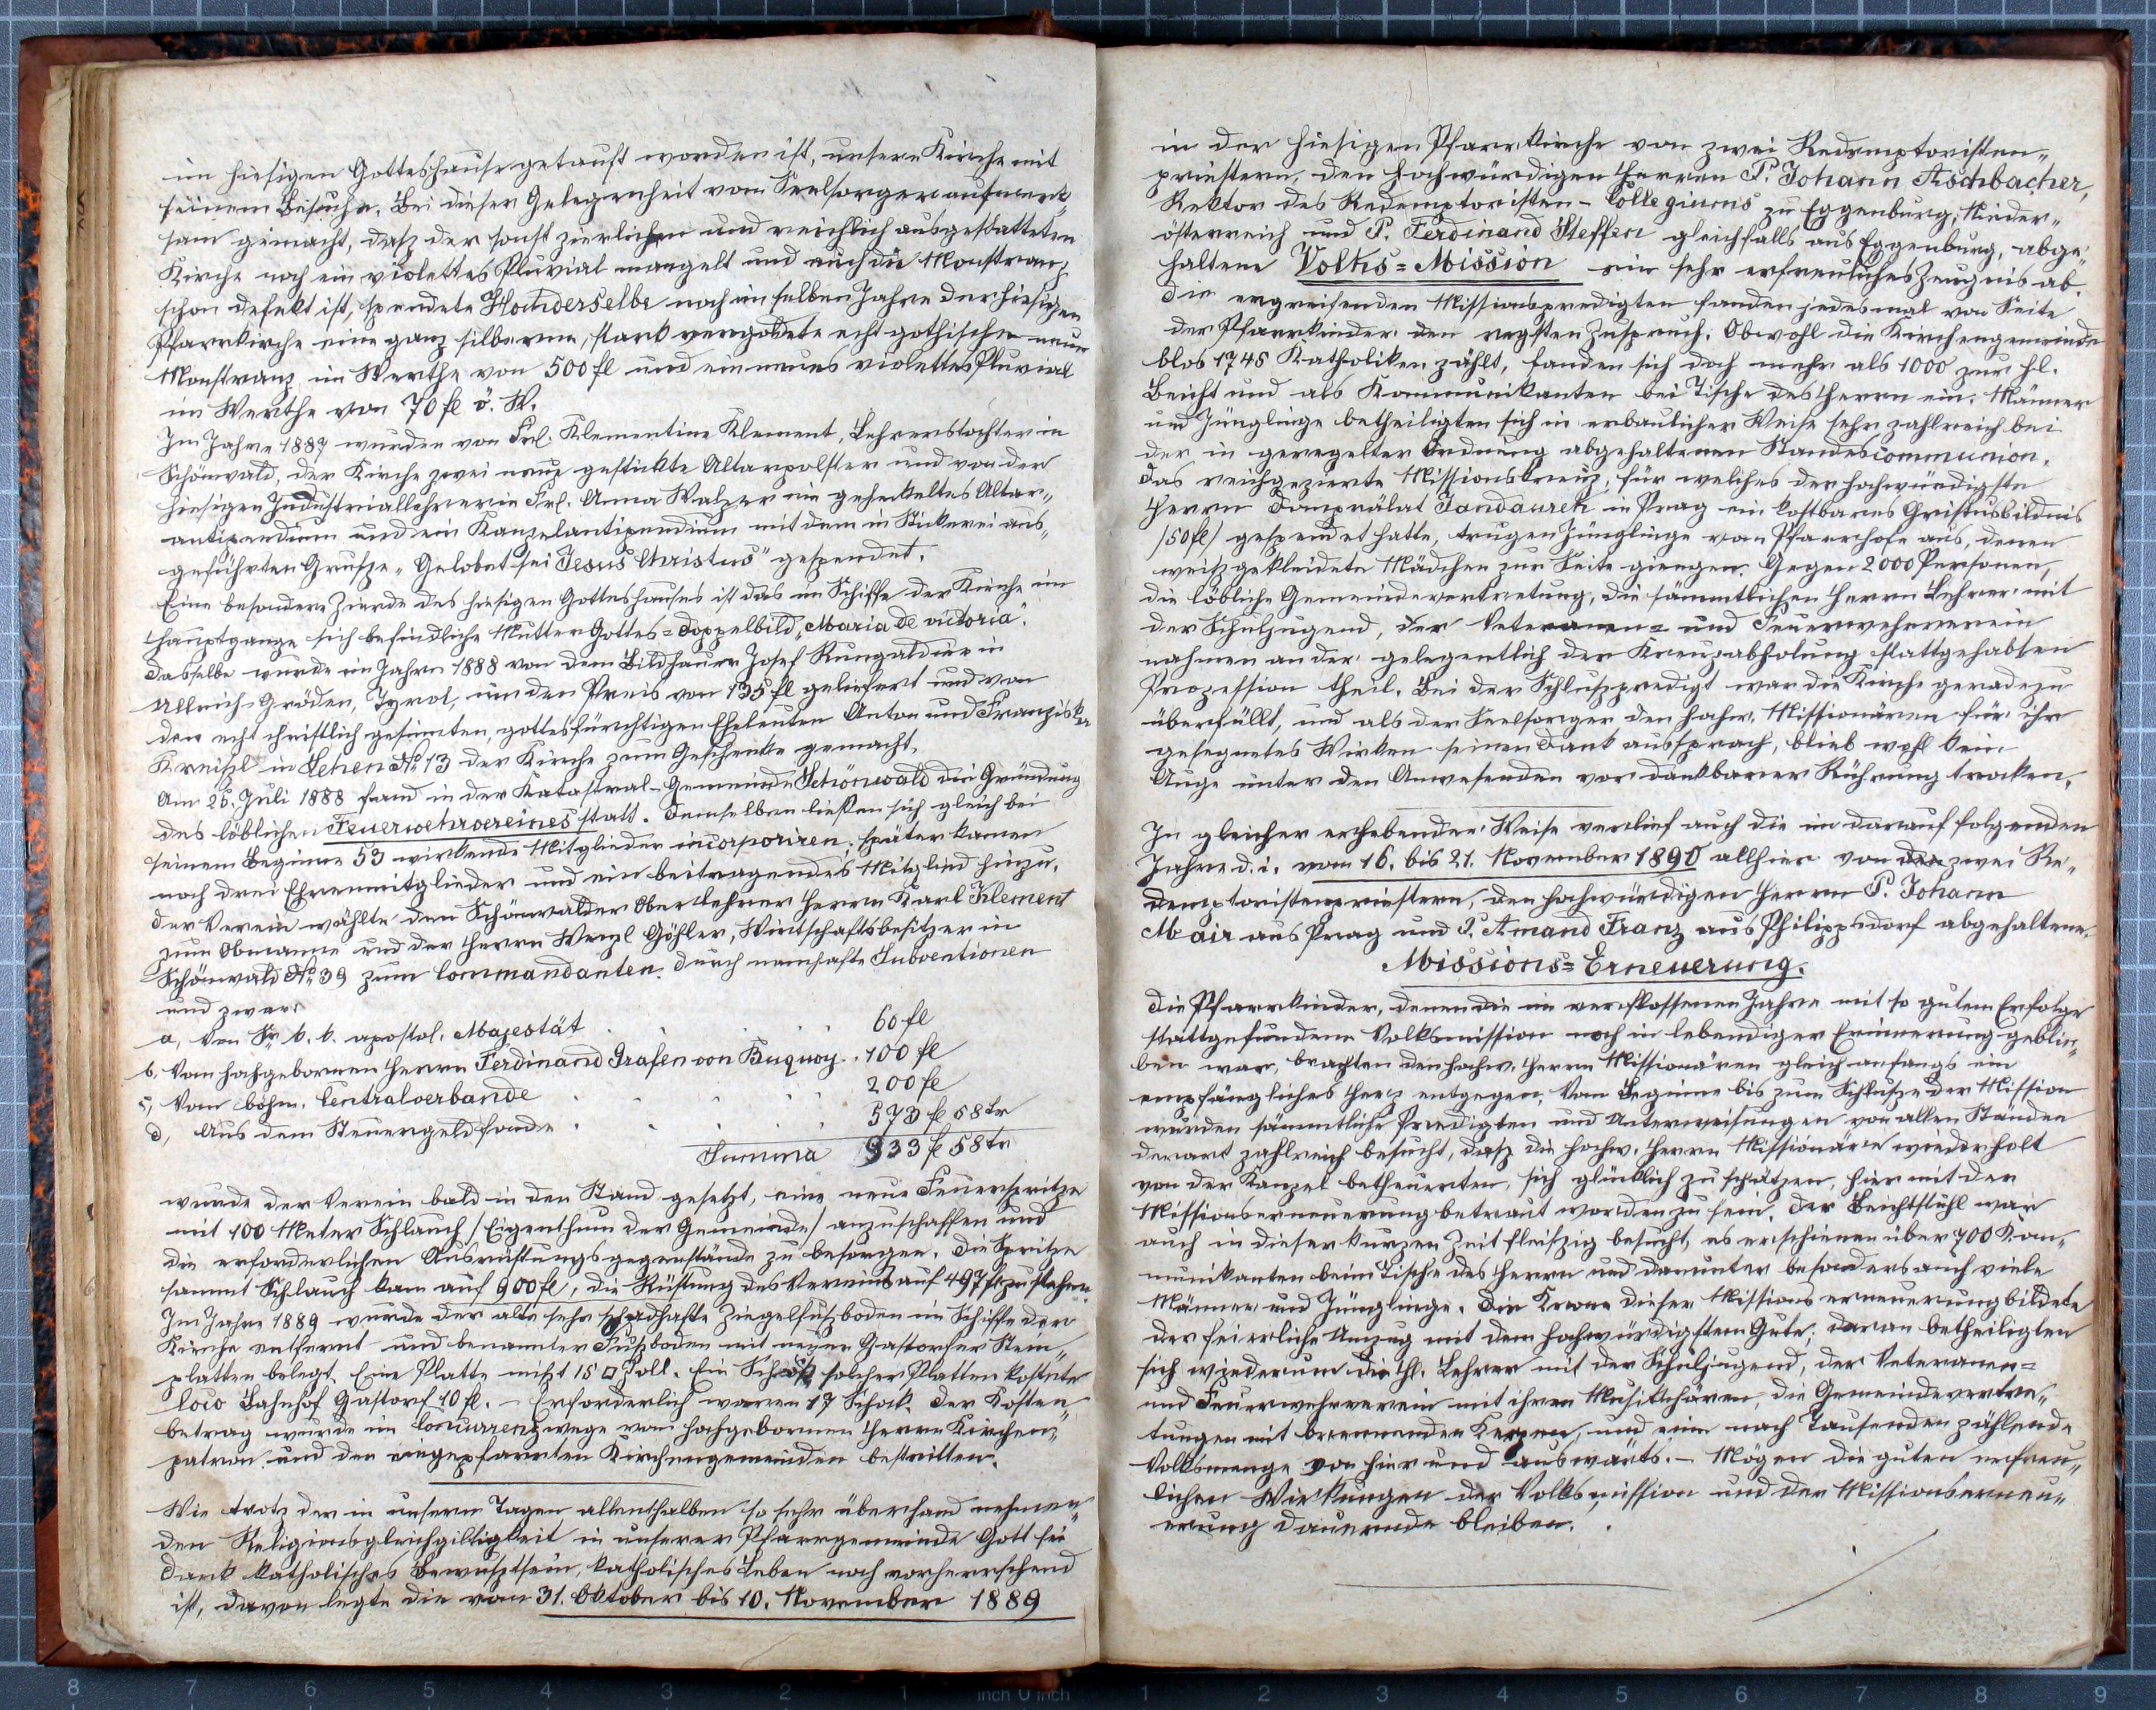 im hiesigen Gotteshause getauft worden ist, unsere Kirche mit
seinem Besuche. Bei dieser Gelegenheit vom Seelsorger aufmerk„
sam gemacht, dasz der sonst zierlichen und reichlich ausgestatteten
Kirche noch ein violettes Pluvial mangelt und auch die Monstranz
schon defekt ist, spendete Hochderselbe noch im selben Jahre der hiesigen
Pfarrkirche eine ganz silberne, stark vergoldete echt gothische neue
Monstranz im Werthe von 500 fl und ein neues violettes Pluvial
im Werthe von 70 fl ö. W.
Im Jahre 1887 wurden von Frl. Klementine Klement, Lehrerstochter in
Schönwald, der Kirche zwei neue gestickte Altarpolster und von der
hiesigen Industriallehrerin Frl. Anna Walzer ein gehekeltes Altar„
antipendium und ein Kanzelantipendium mit dem in Stickerei aus„
geführten Grusze „Gelobet sei Jesus Christus" gespendet.
Eine besondere Zierde des hiesigen Gotteshauses ist das im Schiffe der Kirche im
Hauptgange sich befindliche Mutter Gottes=Doppelbild „Maria de victoria".
Dasselbe wurde im Jahre 1888 von dem Bildhauer Josef Rungaldier in
Ullrich-Gröden, Tyrol, um den Preis von 135 fl geliefert und von
den echt christlich gesinnten, gottesfürchtigen Eheleuten Anton und Franziska
Kreiszl in Lehen No 13 der Kirche zum Geschenke gemacht.
Am 25. Juli 1888 fand in der Katastral-Gemeinde Schönwald die Gründung
des löblichen Feuerwehrvereines statt. Demselben ließen sich gleich bei
seinem Beginne 53 wirkende Mitglieder incorporiren; später kamen
noch drei Ehrenmitglieder und ein beitragendes Mitglied hinzu.
Der Verein wählte den Schönwalder Oberlehrer Herrn Karl Klement
zum Obmanne und den Herrn Wenzl Göhler, Wirtschaftsbesitzer in
Schönwald No 39 zum Commandanten. Durch namhafte Subventionen
und zwar:
a, Von Sr. k. k. apostol. Majestät . . . . 60 fl
b, Vom hochgebornen Herrn Ferdinand Grafen von Buquoy . . 100 fl
c, Vom böhm. Centralverbande . . . . 200 fl
d, Aus dem Steuergeldfonde . . . . . 573 fl 58 kr
Summa 933 fl 58 kr
wurde der Verein bald in den Stand gesetzt, eine neue Feuerspritze
mit 100 Meter Schlauch /Eigenthum der Gemeinde/ anzuschaffen und
die erforderlichen Ausrüstungsgegenstände zu besorgen. Die Spritze
sammt Schlauch kam auf 900 fl, die Rüstung des Vereins auf 497 fl zu stehen.
Im Jahre 1889 wurde der alte sehr schadhafte Ziegelfuszboden im Schiffe der
Kirche entfernt und benannter Fuszboden mit neuen Gastorfer Stein„
platten belegt. Eine Platte miszt 15 □ Zoll. Ein Schok solcher Platten kostete
loco Bahnhof Gastorf 10 fl. – Erforderlich waren 17 Schok. Der Kosten„
betrag wurde im Concurrenzwege vom hochgebornen Herrn Kirchen„
patron und den eingepfarrten Kirchengemeinden bestritten.
Wie trotz der in unsern Tagen allenthalben so sehr überhand nehmen„
den Religionsgleichgiltigkeit in unserer Pfarrgemeinde Gott sei
Dank katholisches Bewusztsein, katholisches Leben noch vorherrschend
ist, davon legte die vom 31. Oktober bis 10. November 1889
in der hiesigen Pfarrkirche von zwei Redemptoristen„
priestern, den hochwürdigen Herren P. Johann Aschbacher,
Rektor des Redemptoristen-Collegiums zu Eggenburg, Nieder„
österreich und P. Ferdinand Steffen gleichfalls aus Eggenburg, abge„
haltene Volks=Mission ein sehr erfreuliches Zeugnis ab.
Die ergreifenden Missionspredigten fanden jedesmal von Seite
der Pfarrkinder den regsten Zuspruch. Obwohl die Kirchengemeinde
blos 1748 Katholiken zählt, fanden sich doch mehr als 1000 zur hl.
Beicht und als Kommunikanten bei Tische des Herrn ein. Männer
und Jünglinge betheiligten sich in erbaulicher Weise sehr zahlreich bei
der in geregelter Ordnung abgehaltenen Standescommunion.
Das reichgezierte Missionskreuz, für welches der hochwürdigste
Herr Domprälat Jandaurek in Prag ein kostbares Christusbildnis
/50 fl/ gespendet hatte, trugen Jünglinge vom Pfarrhofe aus, denen
weisz gekleidete Mädchen zur Seite giengen. Gegen 2000 Personen,
die löbliche Gemeindevertretung, die sämmtlichen Herrn Lehrer mit
der Schuljugend, der Veteranen= und Feuerwehrverein
nahmen an der gelegentlich der Kreuzabholung stattgehabten
Prozession theil. Bei der Schluszpredigt war die Kirche geradezu
überfüllt, und als der Seelsorger den hochw. Missionären für ihr
gesegnetes Wirken seinen Dank aussprach, blieb wohl kein
Auge unter den Anwesenden vor dankbarer Rührung trocken.
In gleicher erhebender Weise verlief auch die im darauf folgenden
Jahre d. i. vom 16. bis 21. November 1890 allhier von den zwei Re„
demptoristenpriestern, den hochwürdigen Herrn P. Johann
Mair aus Prag und P. Amand Franz aus Philippsdorf abgehaltene
Missions=Erneuerung.
Die Pfarrkinder, denen die im verflossenen Jahre mit so gutem Erfolge
stattgefundene Volksmission noch in lebendiger Erinnerung geblie„
ben war, brachten den hochw. Herrn Missionären gleich anfangs ein
empfängliches Herz entgegen. Vom Beginne bis zum Schlusze der Mission
wurden sämmtliche Predigten und Unterweisungen von allen Ständen
derart zahlreich besucht, dasz die hochw. Herrn Missionäre wiederholt
von der Kanzel betheuerten, sich glücklich zu schätzen, hier mit der
Missionserneuerung betraut worden zu sein. Der Beichtstuhl war
auch in dieser kurzen Zeit fleiszig besucht, es erschienen über 700 Kom„
munikanten beim Tische des Herrn und darunter besonders auch viele
Männer und Jünglinge. Die Krone dieser Missionserneuerung bildete
der feierliche Umzug mit dem hochwürdigsten Gute; daran betheiligten
sich wiederum die H. Lehrer mit der Schuljugend, der Veteranen=
und Feuerwehrverein mit ihren Musikchören, die Gemeindevertre„
tungen mit brennenden Kerzen, und eine nach Tausenden zählende
Volksmenge von hier und auswärts. – Mögen die guten erfreu„
lichen Wirkungen der Volksmission und der Missionserneu„
erung dauernde bleiben.
8 7 6 5 4 3 2 1 inch 0 inch 1 2 3 4 5 6 7 8 9